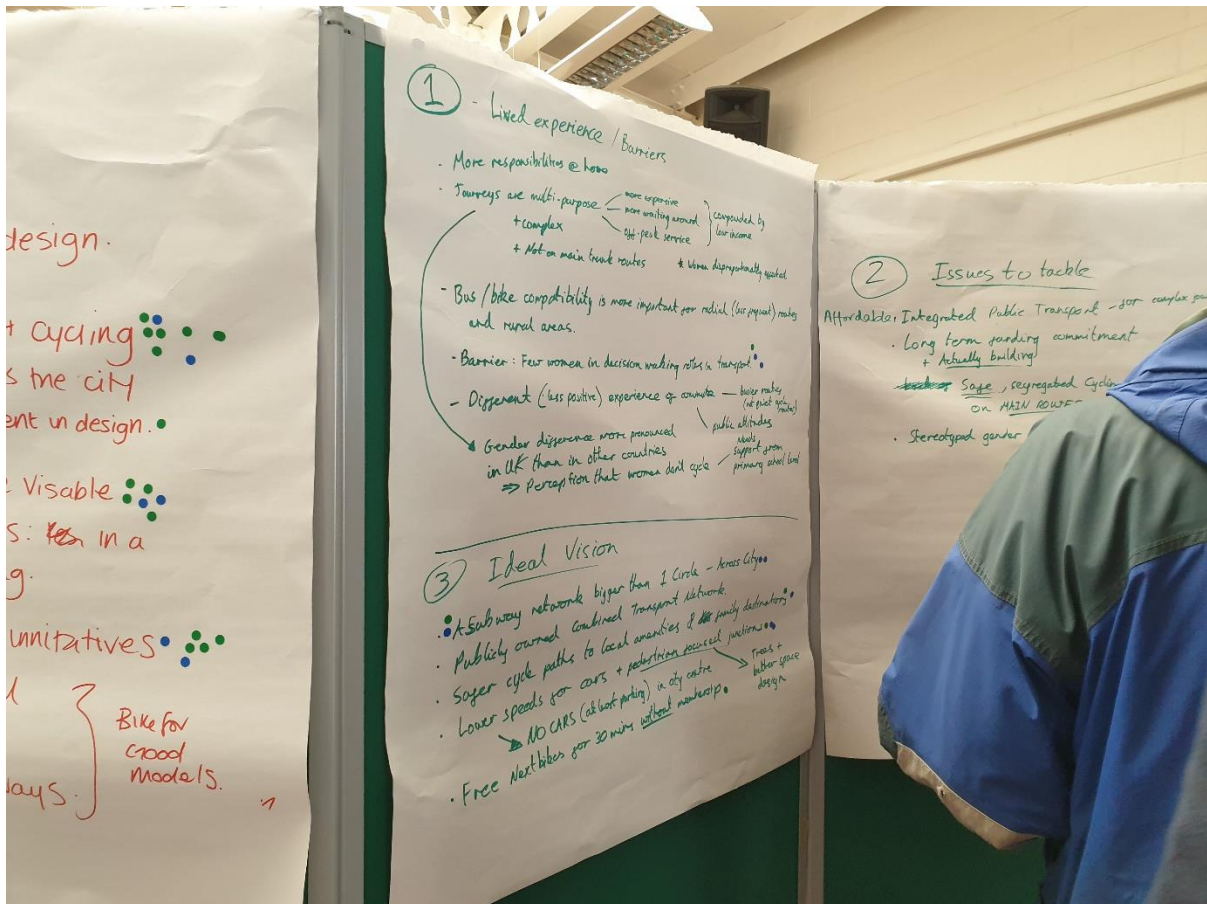 design.
+ cycling
s the city
ent in design.
e Visable
s: in a
g.
unnitatives
d
days.
Bike for
Good
models.
1 - Lived experience / Barriers
· More responsibilities @ home
· Journeys are multi-purpose
more expensive
more waiting around
off-peak service
compounded by
low income
+ complex
+ Not on main trunk routes
* Women disproportionally affected
· Bus / bike compatibility is more important for radial (less frequent) routes
and rural areas.
- Barrier: Few women in decision making roles in transport.
- Different (less positive) experience of commute
busier routes
(not quiet cycle
routes)
public attitudes
Gender difference more pronounced
in UK than in other countries
⇒ Perception that women don't cycle
needs
support from
primary school level
3 Ideal Vision
· A Subway network bigger than 1 Circle - Across City
· Publicly owned combined Transport Network.
· Safer cycle paths to local amenities & family destinations
· Lower speeds for cars + pedestrian focused junctions
Trees +
better space
design
NO CARS (at least parking) in city centre
· Free Nextbikes for 30 mins without membership
2 Issues to tackle
Affordable, Integrated Public Transport - for complex
· Long term funding commitment
+ Actually building
Safe, segregated Cyclin
on MAIN ROUTES
· Stereotyped gender